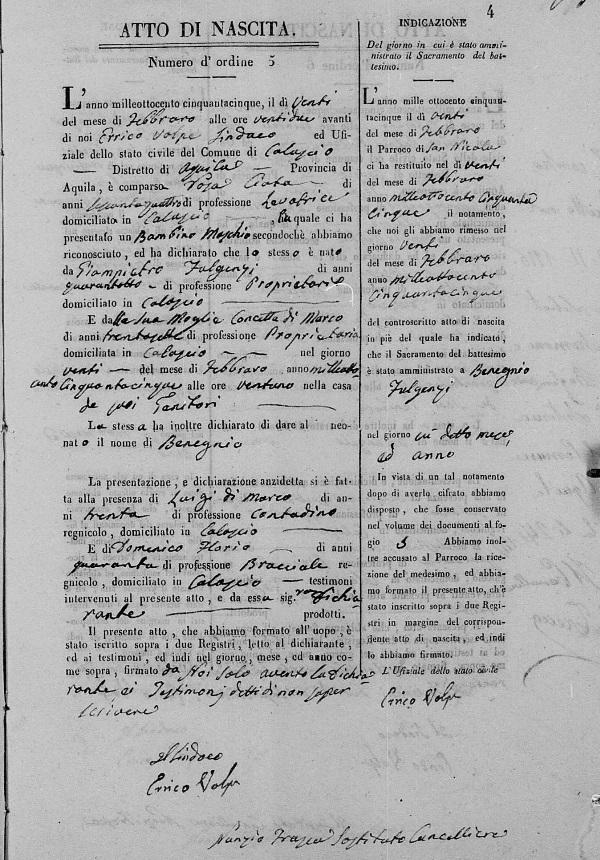 4
ATTO DI NASCITA.
Numero d' ordine 5
L'anno milleottocento cinquantacinque, il dì Venti
del mese di Febbraro alle ore ventidue avanti
di noi Errico Volpe Sindaco ed Ufi-
ziale dello stato civile del Comune di Calascio
Distretto di Aquila Provincia di
Aquila, è comparsa Rosa Ciota di
anni di professione Levatrice
domiciliato in Calascio , la quale ci ha
presentato un Bambino Maschio secondochè abbiamo
riconosciuto, ed ha dichiarato che lo stesso è nato
da Giampietro Fulgenzi di anni
quarantotto di professione Proprietario
domiciliato in Calascio
E dalla sua Moglie Concetta di Marco
di anni trentasette di professione Propretaria
domiciliata in Calascio nel giorno
venti del mese di Febbraro anno milleotto
cento Cinquantacinque alle ore ventuno nella casa
de suoi Genitori
La stessa ha inoltre dichiarato di dare al neo-
nato il nome di Benegnio
La presentazione, e dichiarazione anzidetta si è fat-
ta alla presenza di Luigi di Marco di an-
ni trenta di professione Contadino
regnicolo, domiciliato in Calascio
E di Domenico Florio di anni
quaranta di professione Bracciale re-
gnicolo, domiciliato in Calascio testimoni
intervenuti al presente atto, e da essa sig.ra Dichia
rante prodotti.
Il presente atto, che abbiamo formato all'uopo, è
stato iscritto sopra i due Registri, letto al dichiarante,
ed ai testimoni, ed indi nel giorno, mese, ed anno co-
me sopra, firmato da Noi solo avento la Dichia
rante ei Testimonj detti di non saper
scrivere
Il Sindaco
Errico Volpe
Sostituto Cancelliere
INDICAZIONE
Del giorno in cui è stato ammi-
nistrato il Sacramento del bat-
tesimo.
L'anno mille ottocento cinquan-
tacinque il dì Venti
del mese di Febbraro
il Parroco di San Nicola
ci ha restituito nel dì Venti
del mese di Febbraro
anno milleottocento Cinquanta
Cinque il notamento,
che noi gli abbiamo rimesso nel
giorno Venti
del mese di Febbraro
anno Milleottocento
Cinquantacinque
del controscritto atto di nascita
in piè del quale ha indicato,
che il Sacramento del battesimo
è stato amministrato a Benegnio
Fulgenzi
nel giorno su detto mese,
ed anno
In vista di un tal notamento
dopo di averlo cifrato abbiamo
disposto, che fosse conservato
nel volume dei documenti al fo-
gio 5 Abbiamo inol-
tre accusato al Parroco la rice-
zione del medesimo, ed abbia-
mo formato il presente atto, ch'è
stato inscritto sopra i due Regi-
stri in margine del corrispon-
dente atto di nascita, ed indi
lo abbiamo firmato.
L'Ufiziale dello stato civile
Errico Volpe